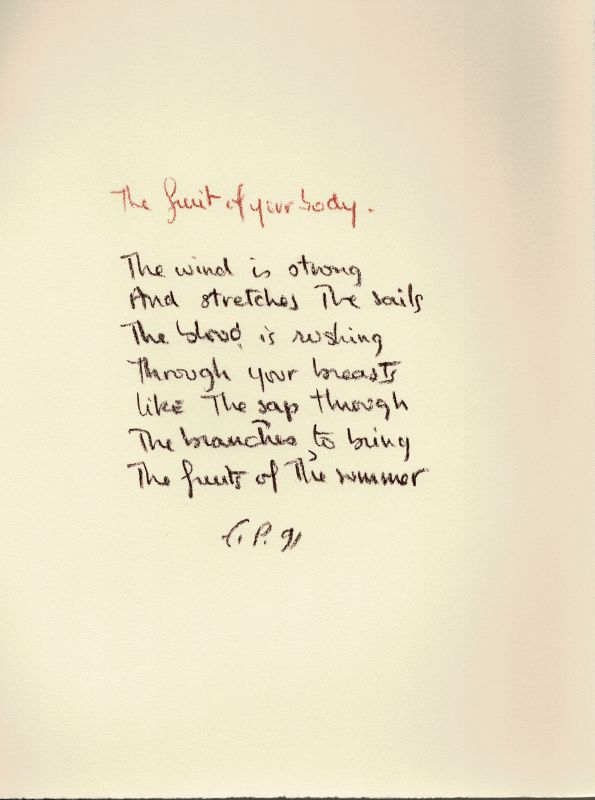 The fruit of your body.
The wind is strong
And stretches The sails
The blood is rushing
Through your breasts
like The sap through
The branches to bring
The fruits of The summer
P. 91